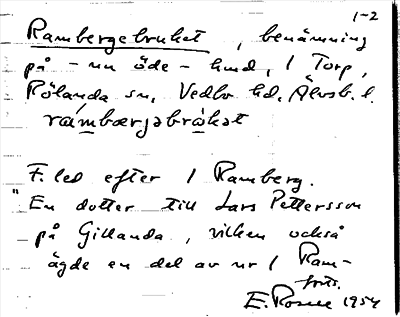 1-2
Rambergebruket, benämning
på - nu öde - hmd, 1 Torp,
Rölanda sn, Vedbo hd, Älvsb. l.
rambærjəbrʉkət
F. led efter 1 Ramberg.
"En dotter till Lars Pettersson
på Gillanda, vilken också
ägde en del av nr 1 Ram-
forts.
E. Rosell 1954